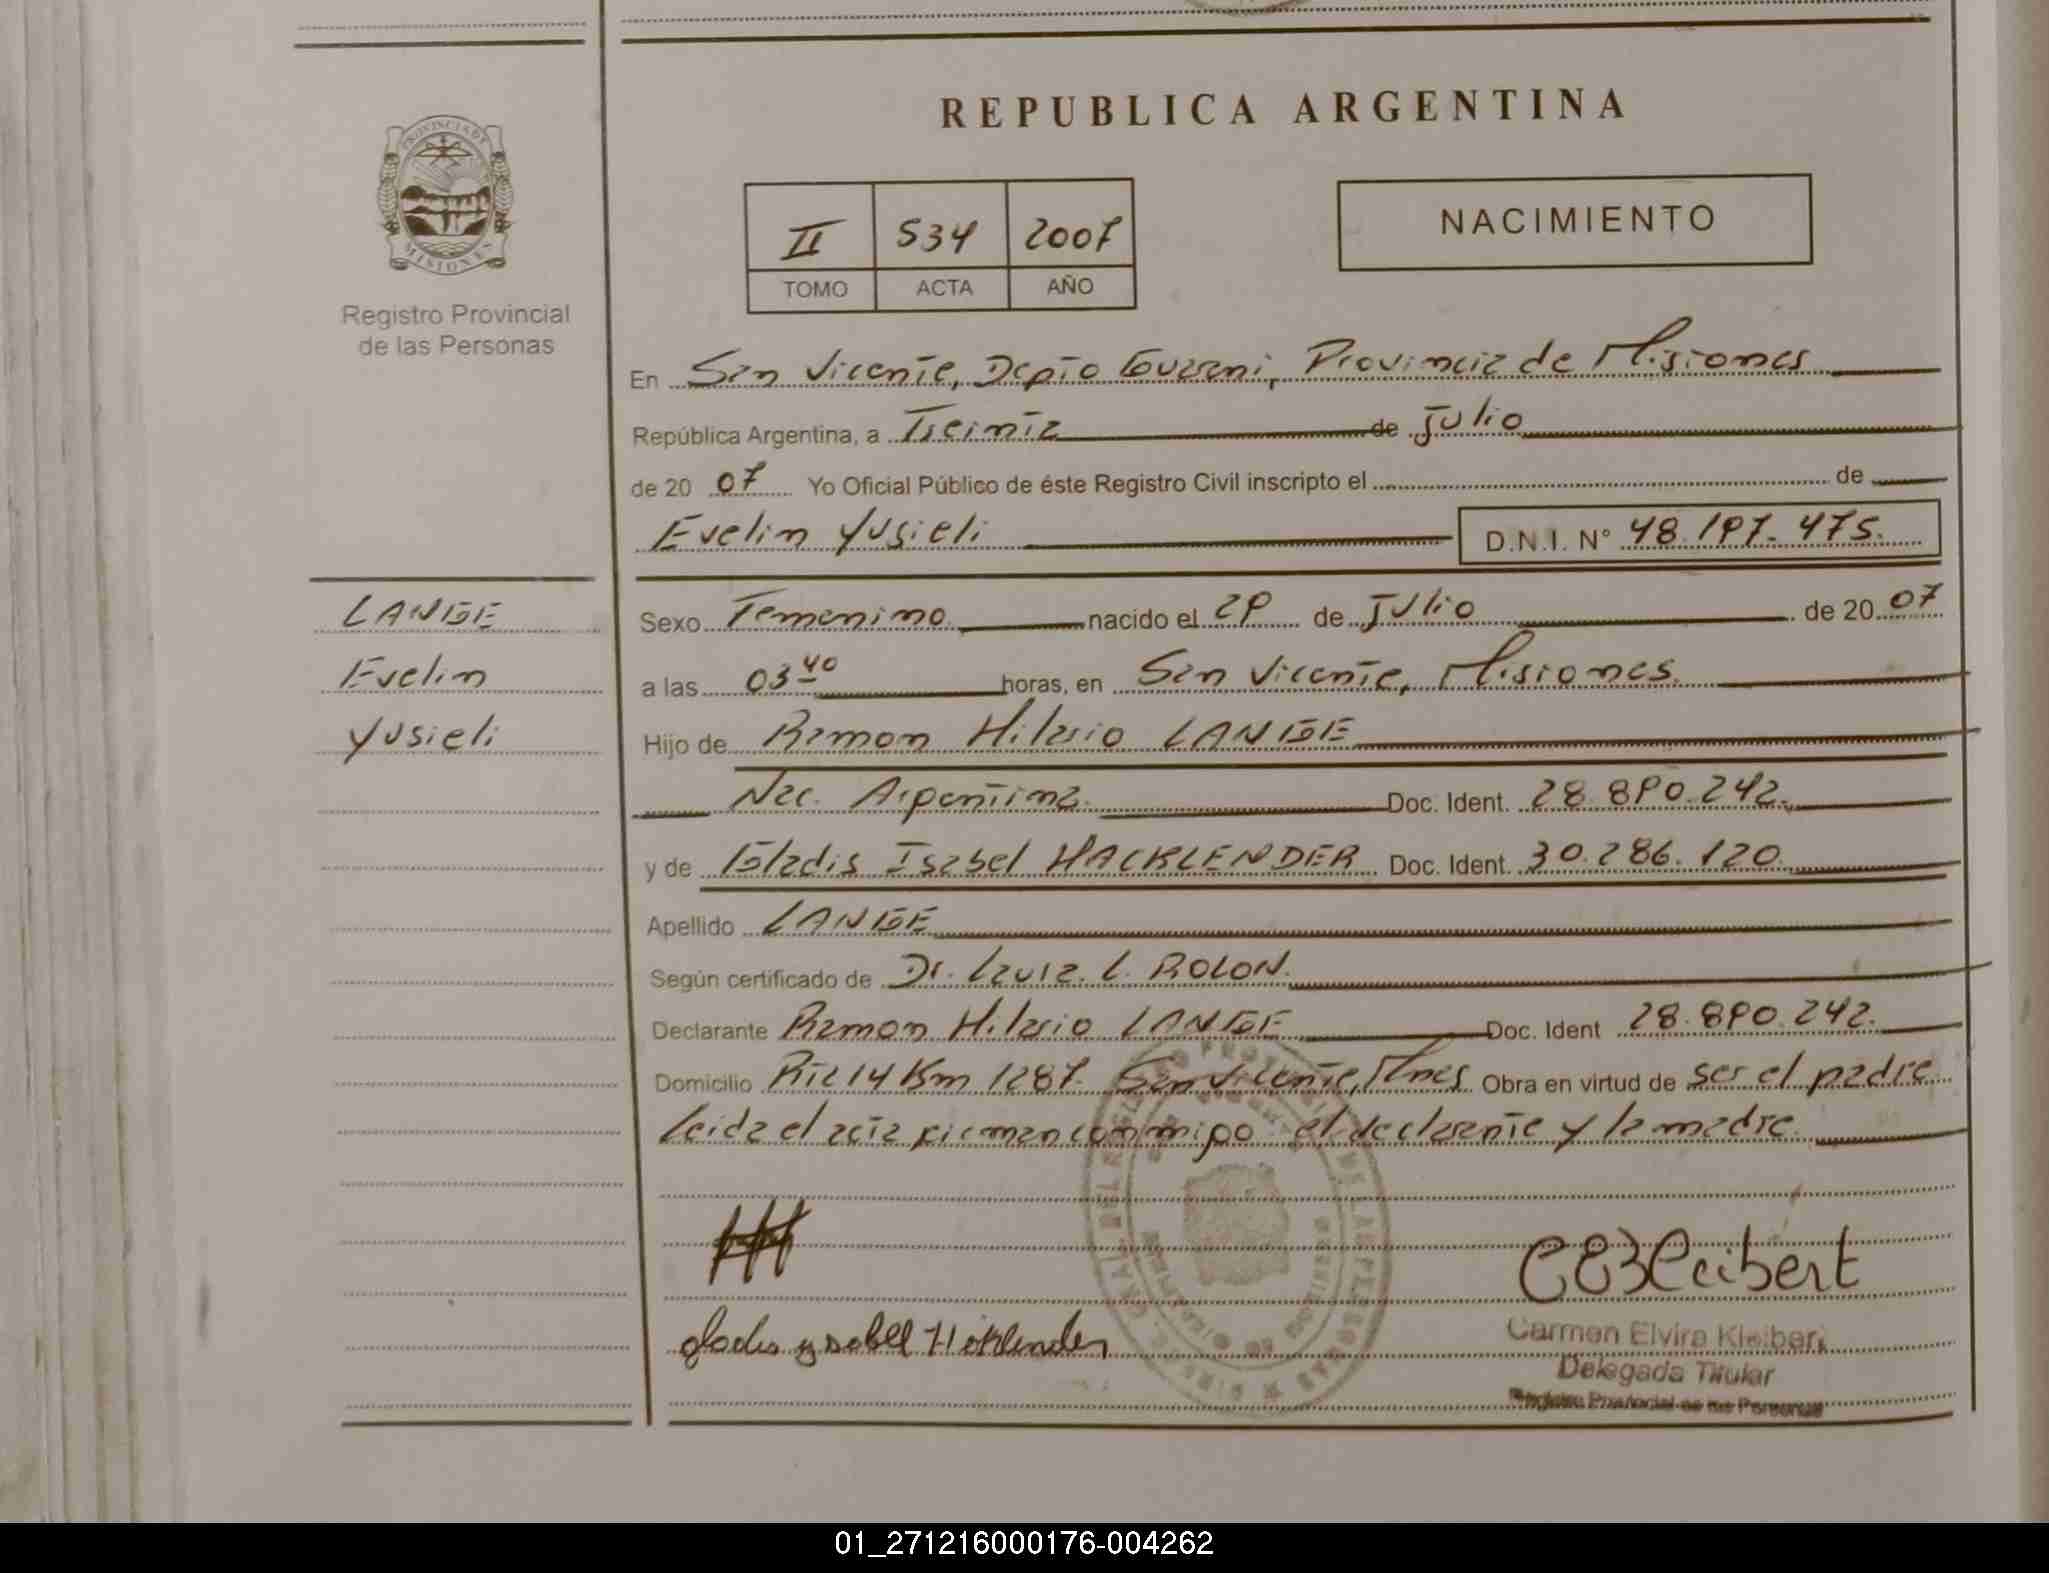 REPUBLICA ARGENTINA
PROVINCIA DE
MISIONES
Registro Provincial
de las Personas
II 534 2007
TOMO ACTA AÑO
NACIMIENTO
En San Vicente, Depto Guarani, Provincia de Misiones
República Argentina, a Treinta de Julio
de 20 07 Yo Oficial Público de éste Registro Civil inscripto el de
Evelin Yusieli D.N.I. N° 48.197.475.
LANGE
Evelin
Yusieli
Sexo Femenino nacido el 29 de Julio de 20 07
a las 03 40 horas, en San Vicente, Misiones.
Hijo de Ramon Hilario LANGE
Nac. Argentina. Doc. Ident. 28.890.242.
y de Gladis Isabel HACKLENDER Doc. Ident. 30.286.120.
Apellido LANGE
Según certificado de Dr. Laura. L. ROLON.
Declarante Ramon Hilario LANGE Doc. Ident 28.890.242.
Domicilio Rta 14 Km 1287. San Vicente, Mnes Obra en virtud de ser el padre
Leida el acta firman conmigo el declarante y la madre.
gladis ysabel Haklender
CE3Kleibert
Carmen Elvira Kleibert
Delegada Titular
Registro Provincial de las Personas
01_271216000176-004262